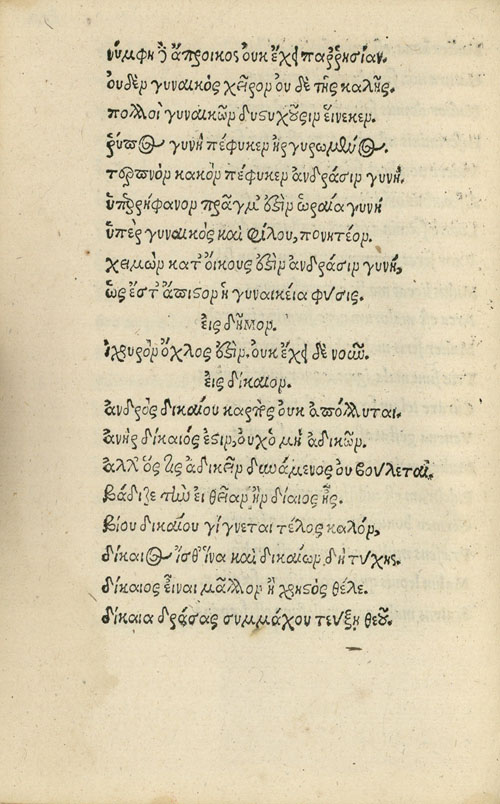 νύμφη δ' ἄπροικος ὀυκ ἔχει παῤῥησίαν.
ὀυδὲν γυναικὸς χεῖρον ὀυδὲ τῆς καλῆς.
πολλοὶ γυναικῶν δυστυχοῦσιν ἕινεκεν.
ῥύπος γυνὴ πέφυκεν ἠργυρωμένος.
τερπνὸν κακὸν πέφυκεν ἀνδράσιν γυνή.
ὑπερήφανον πρᾶγμ' ἐστὶν ὡραία γυνή
ὑπὲρ γυναικὸς καὶ φίλου, πονητέον.
χειμὼν κατ' ὄικους ἐστὶν ἀνδράσιν γυνή,
ὡς ἔστ' ἄπιστον ἡ γυναικεία φύσις.
ἐις δῆμον.
ἰσχυρὸν ὄχλος ἐστὶν. ὀυκ ἔχει δὲ νοῦν.
ἐις δίκαιον.
ἀνδρὸς δικαίου καρπὸς ὀυκ ἀπόλλυται.
ἀνὴρ δίκαιός ἐστιν, ὀυχ ὁ μὴ ἀδικῶν.
ἀλλ' ὅς τις ἀδικεῖν δυνάμενος ὀυ βούλεται.
βάδιζε τὴν ἐυθεῖαν ἣν δίαιος ἦς.
βίου δικαίου γίγνεται τέλος καλόν,
δίκαιος ἴσθ' ἵνα καὶ δικαίων δὴ τύχης.
δίκαιος ἐῖναι μᾶλλον ἢ χρηστὸς θέλε.
δίκαια δράσας συμμάχου τεύξη θεοῦ.